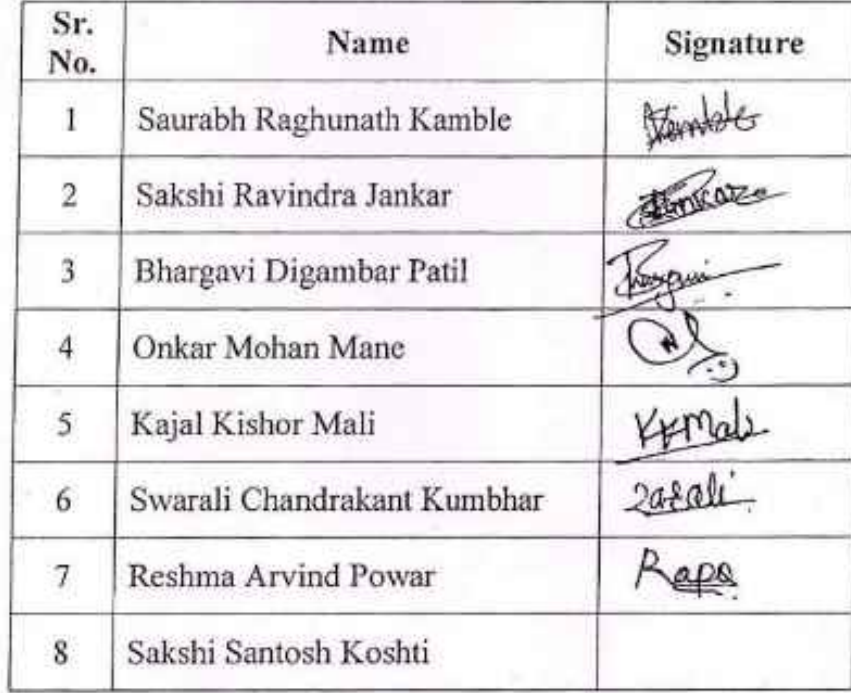 Sr. No. Name Signature
1 Saurabh Raghunath Kamble Kamble
2 Sakshi Ravindra Jankar
3 Bhargavi Digambar Patil
4 Onkar Mohan Mane
5 Kajal Kishor Mali KKMali
6 Swarali Chandrakant Kumbhar
7 Reshma Arvind Powar
8 Sakshi Santosh Koshti